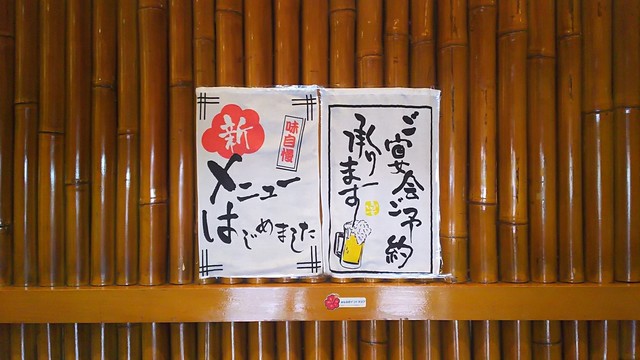 新
味自慢
メニュー
はじめました
ご宴会ご予約
承ります